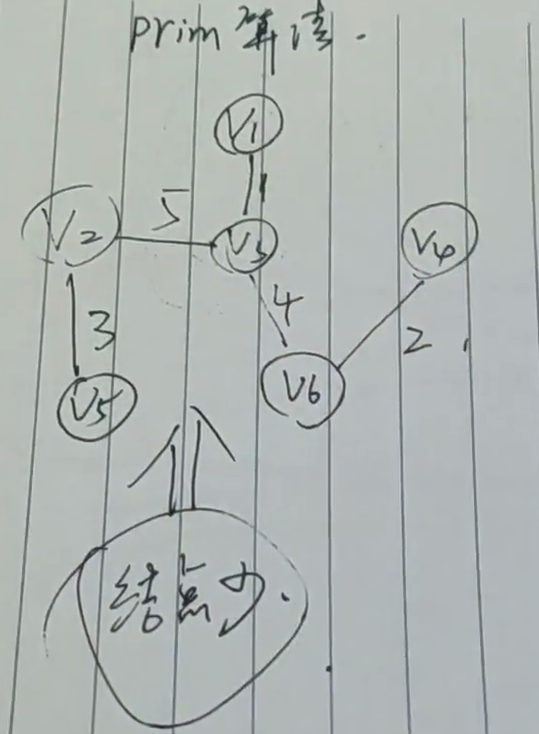 prim 算法.
V1
1
V2 5 V3 V4
4
3 2
V5 V6
结点少.